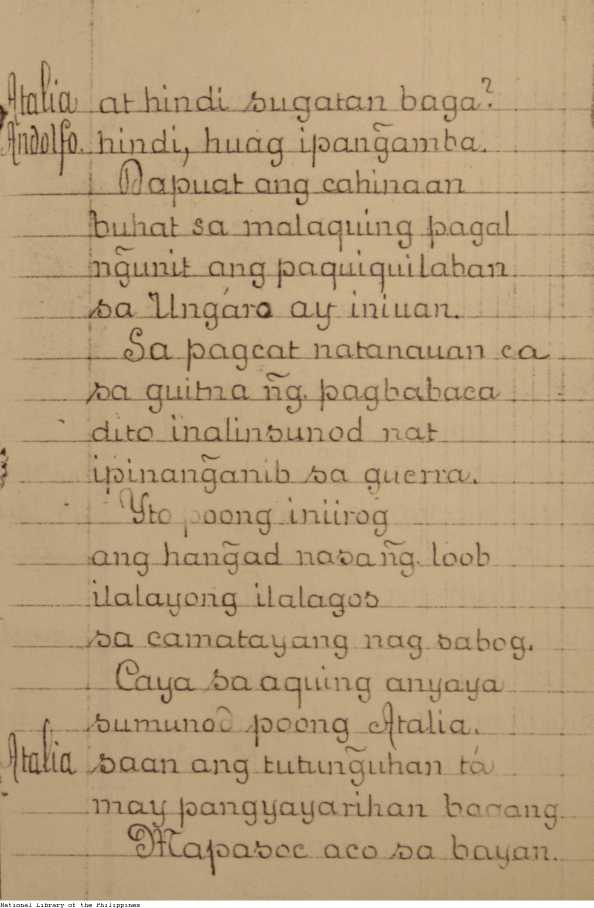 Atalia at hindi sugatan baga?
Andolfo. hindi, huag ipang̃amba.
Dapuat ang cahinaan
buhat sa malaquing pagal
ng̃unit ang paquiquilaban
sa Ungáro ay iniuan.
Sa pagcat natanauan ca
sa guitna ñg. pagbabaca
dito inalinsunod nat
ipinang̃anib sa guerra.
Yto poong iniirog
ang hang̃ad nasa ñg. loob
ilalayong ilalagos
sa camatayang nag sabog.
Caya sa aquing anyaya
sumunod poong Atalia.
Atalia saan ang tutung̃uhan tá
may pangyayarihan bagang
Mapasoc aco sa bayan.
National Library of the Philippines